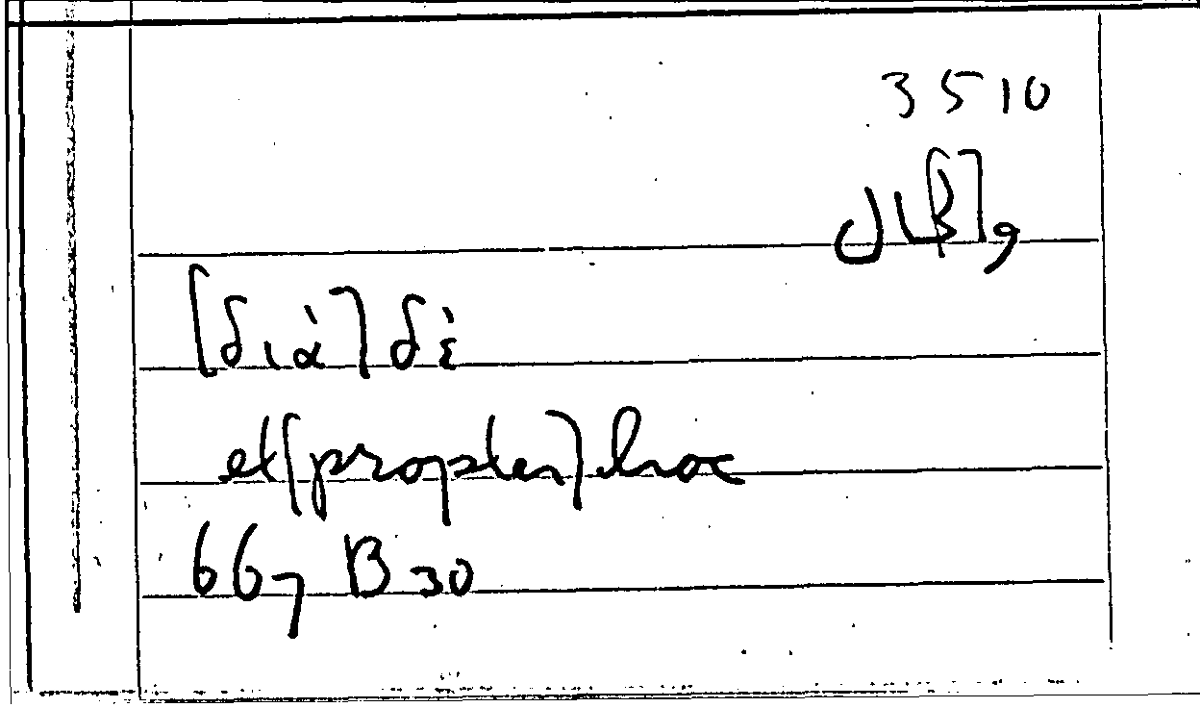 3510
[διὰ] δὲ
et [propter] hoc
667 B 30